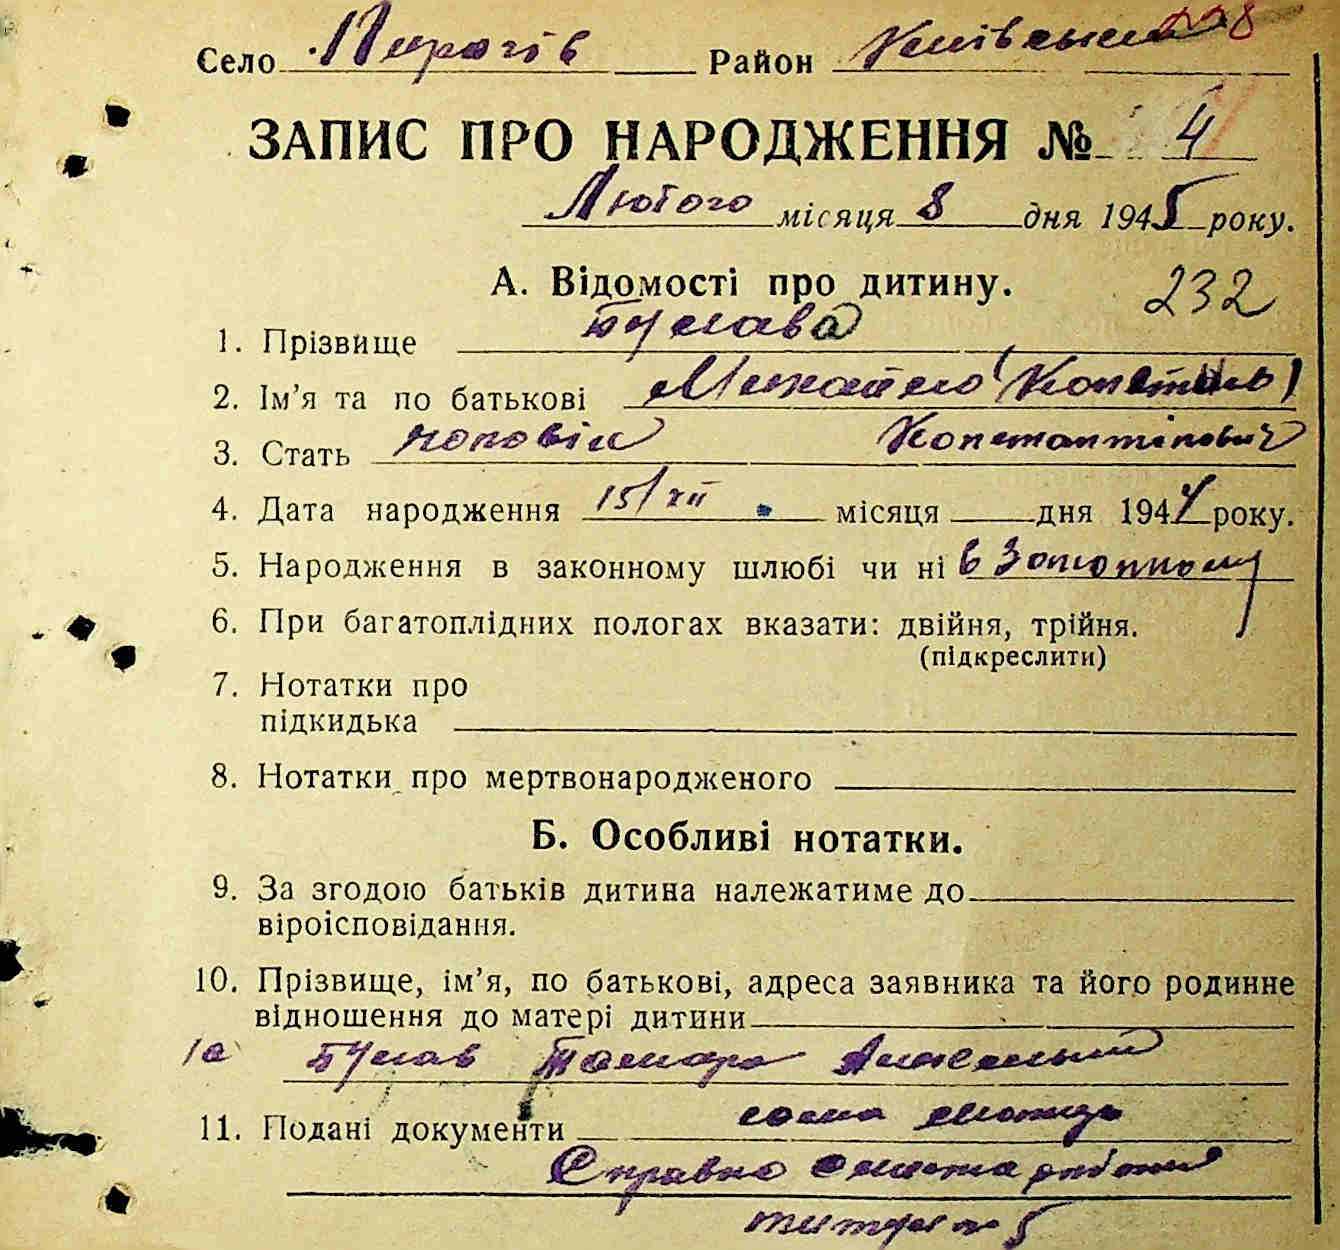 Село Пирогів Район Київський 228
ЗАПИС ПРО НАРОДЖЕННЯ № 4
Лютого місяця 8 дня 1945 року.
А. Відомості про дитину. 232
1. Прізвище Булава
2. Ім’я та по батькові Михайло (Констант)
3. Стать чоловіч Константінович
4. Дата народження 15/XII місяця дня 1944 року.
5. Народження в законному шлюбі чи ні в Законному
6. При багатоплідних пологах вказати: двійня, трійня.
(підкреслити)
7. Нотатки про
підкидька
8. Нотатки про мертвонародженого
Б. Особливі нотатки.
9. За згодою батьків дитина належатиме до
віроісповідання.
10. Прізвище, ім’я, по батькові, адреса заявника та його родинне
відношення до матері дитини
Булав Тамара
11. Подані документи сама матир
Справка
5